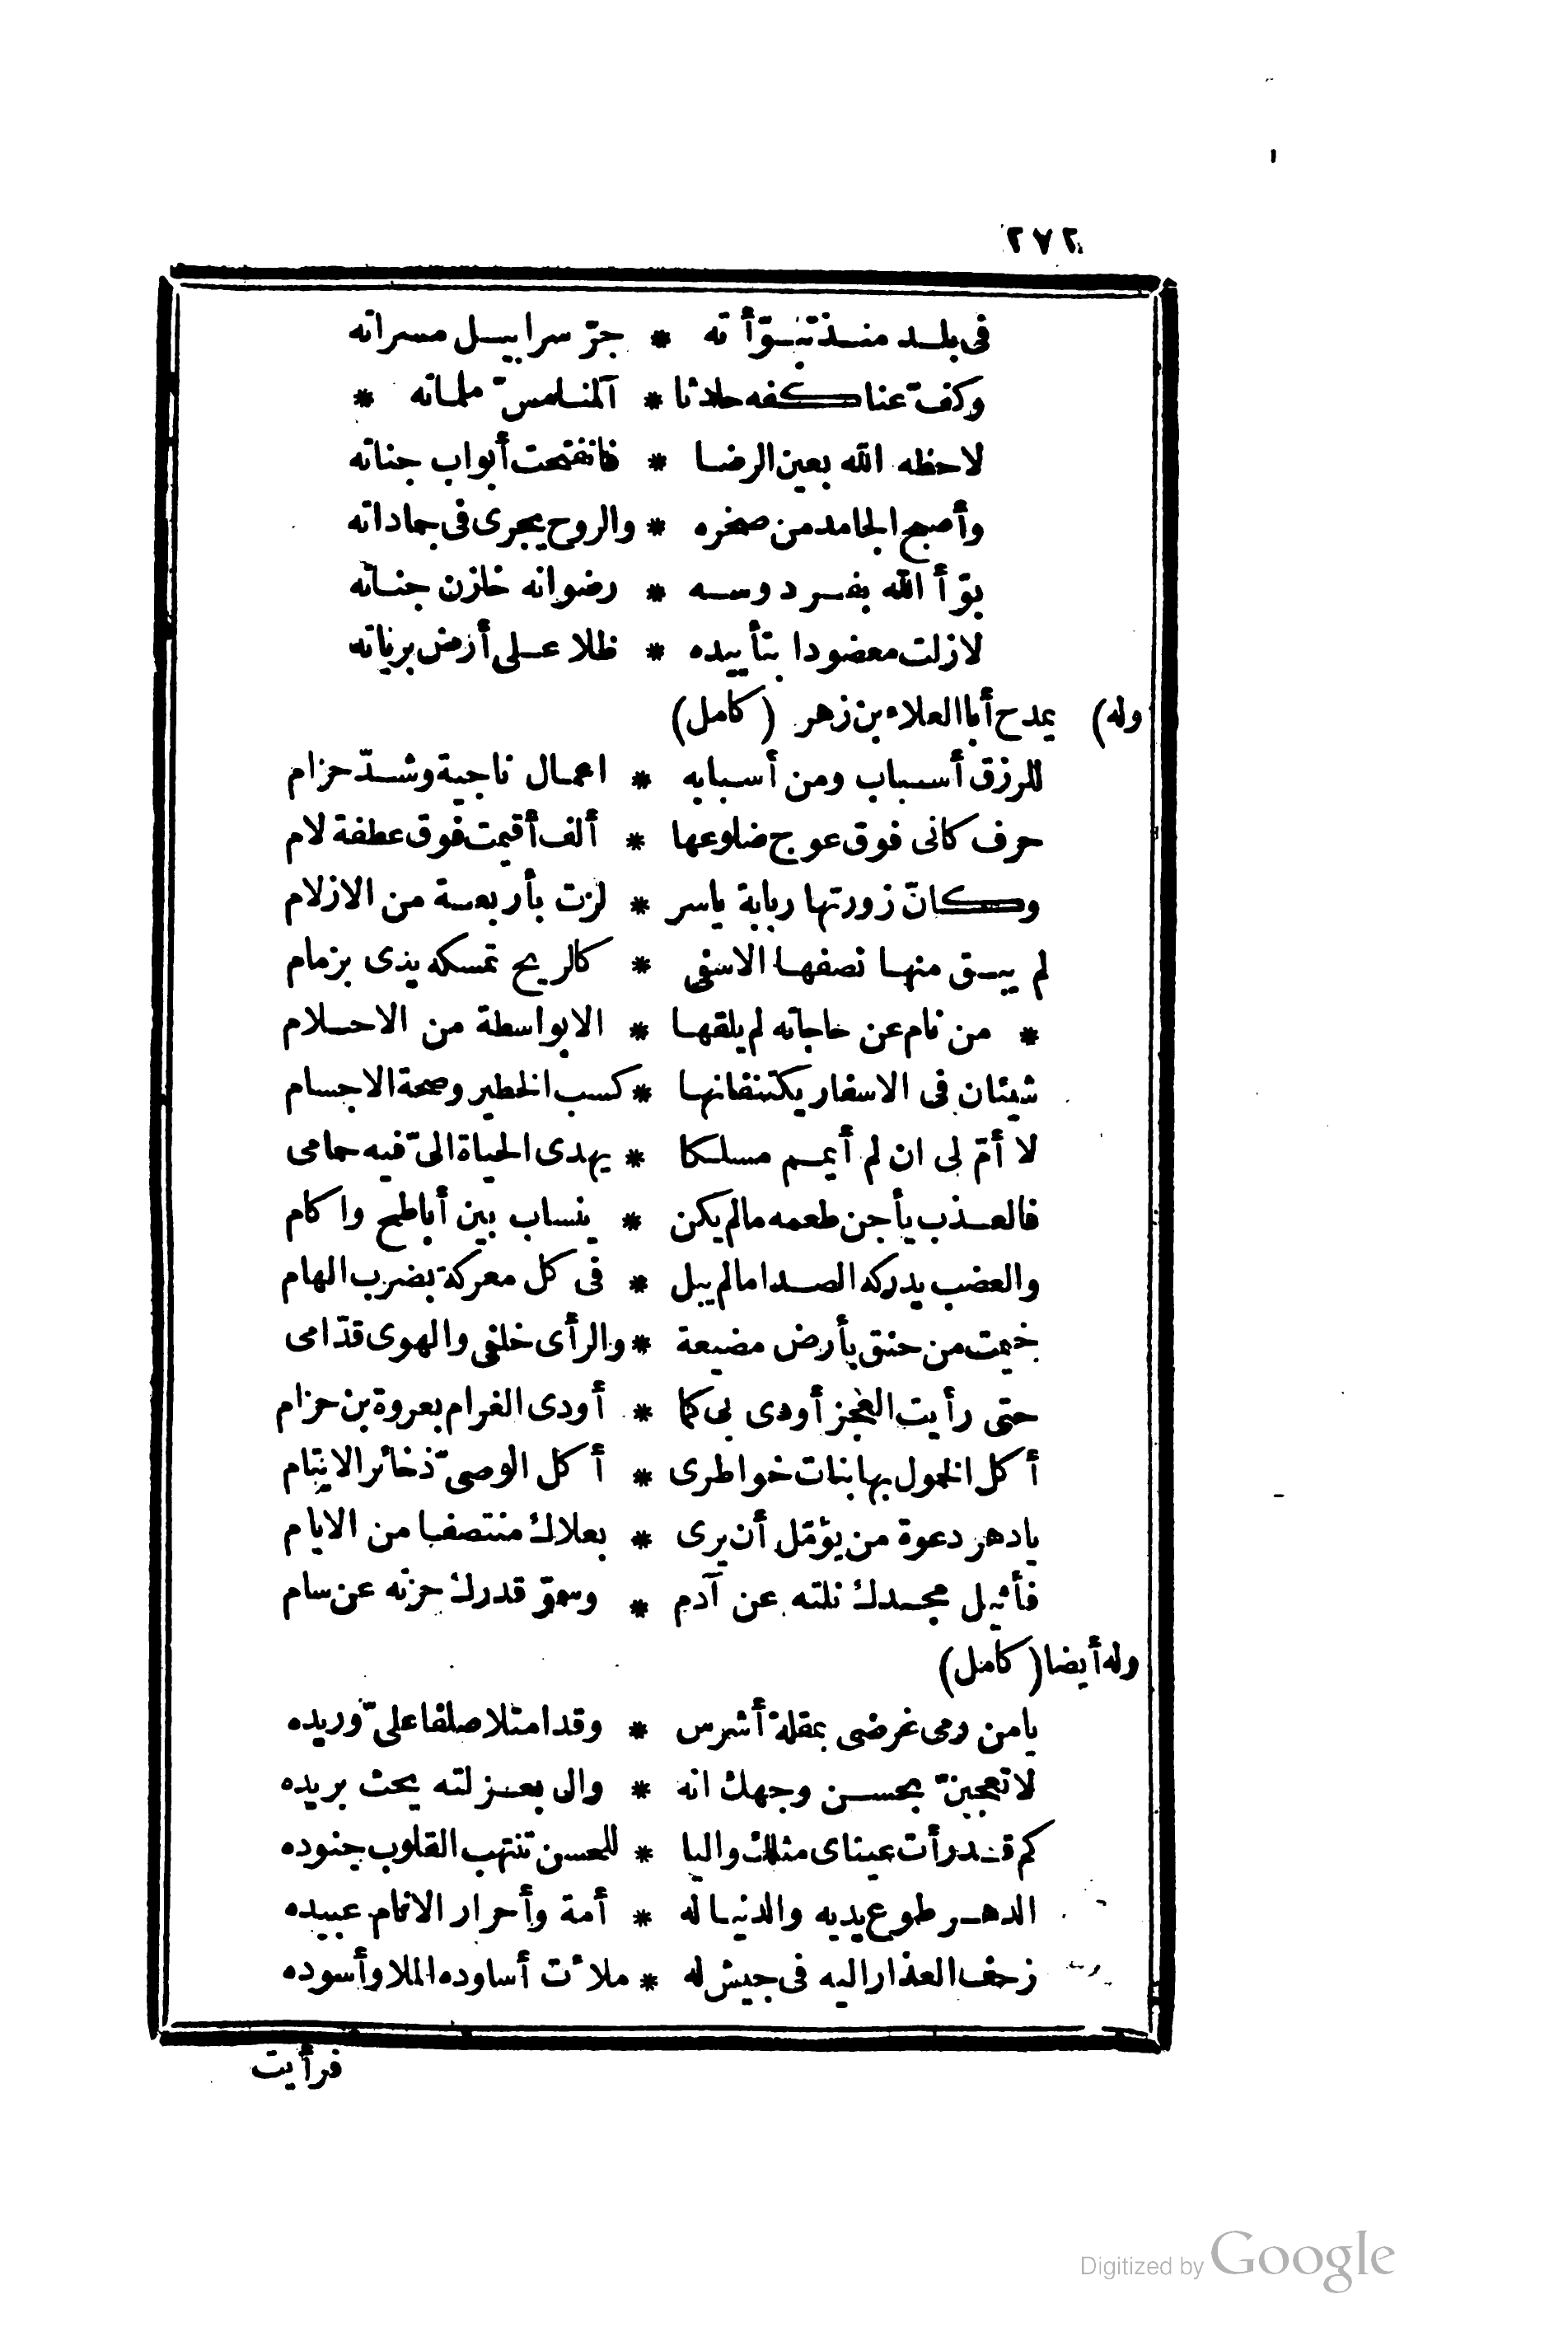 ٢٧٢
فى بلد منذ تبوّأته * جرّ سرابيل مسراته
وكفّ عنا كفه حادثا * آلمنا مسّ ملماته *
لاحظه الله بعين الرضا * فانفتحت أبواب جناته
وأصبح الجامد من صخره * والروح يجرى فى جماداته
بوّأ الله بفردوسه * رضوانه خازن جناته
لازلت معضودا بتأييده * ظلا على أرض برياته
وله) يمدح أبا العلاء بن زهر (كامل)
للرزق أسباب ومن أسبابه * اعمال ناجية وشدّ حزام
حرف كانى فوق عوج ضلوعها * ألف أقيمت فوق عطفة لام
وكانّ زورتها ربابة ياسر * لزت بأربعة من الازلام
لم يبق منها نصفها الاسفى * كالريح تمسكه يذى بزمام
* من نام عن حاجاته لم يلقها * الا بواسطة من الاحلام
شيئان فى الاسفار يكتنفانها * كسب الخطير وصحة الاجسام
لا أمّ لى ان لم أيمم مسلكا * يهدى الحياة الىّ فيه حمامى
فالعذب يأجن طعمه مالم يكن * ينساب بين أباطح واكام
والعضب يدركه الصدا مالم يبل * فى كل معركة بضرب الهام
خيمت من حنق بأرض مضيعة * والرأى خلفى والهوى قدّامى
حتى رأيت العجز أودى بى كما * أودى الغرام بعروة بن حزام
أكل الخمول بها بنات خواطرى * أكل الوصىّ ذخائر الايتام
يادهر دعوة من يؤمّل أن يرى * بعلاك منتصفا من الايام
فأثيل مجدك نلته عن آدم * وسموّ قدرك حزته عن سام
وله أيضا (كامل)
يامن رمى غرضى بمقلة أشرس * وقدا مثلا صلفا علىّ وريده
لا تعجبنّ بحسن وجهك انه * وال بعزلته يحث بريده
كم قد رأت عيناى مثلك واليا * للحسن تنتهب القلوب جنوده
الدهر طوع يديه والدنيا له * أمة وأحرار الانام عبيده
زحف العذار اليه فى جيش له * ملأت أساوده الملا وأسوده
فرأيت
Digitized by Google